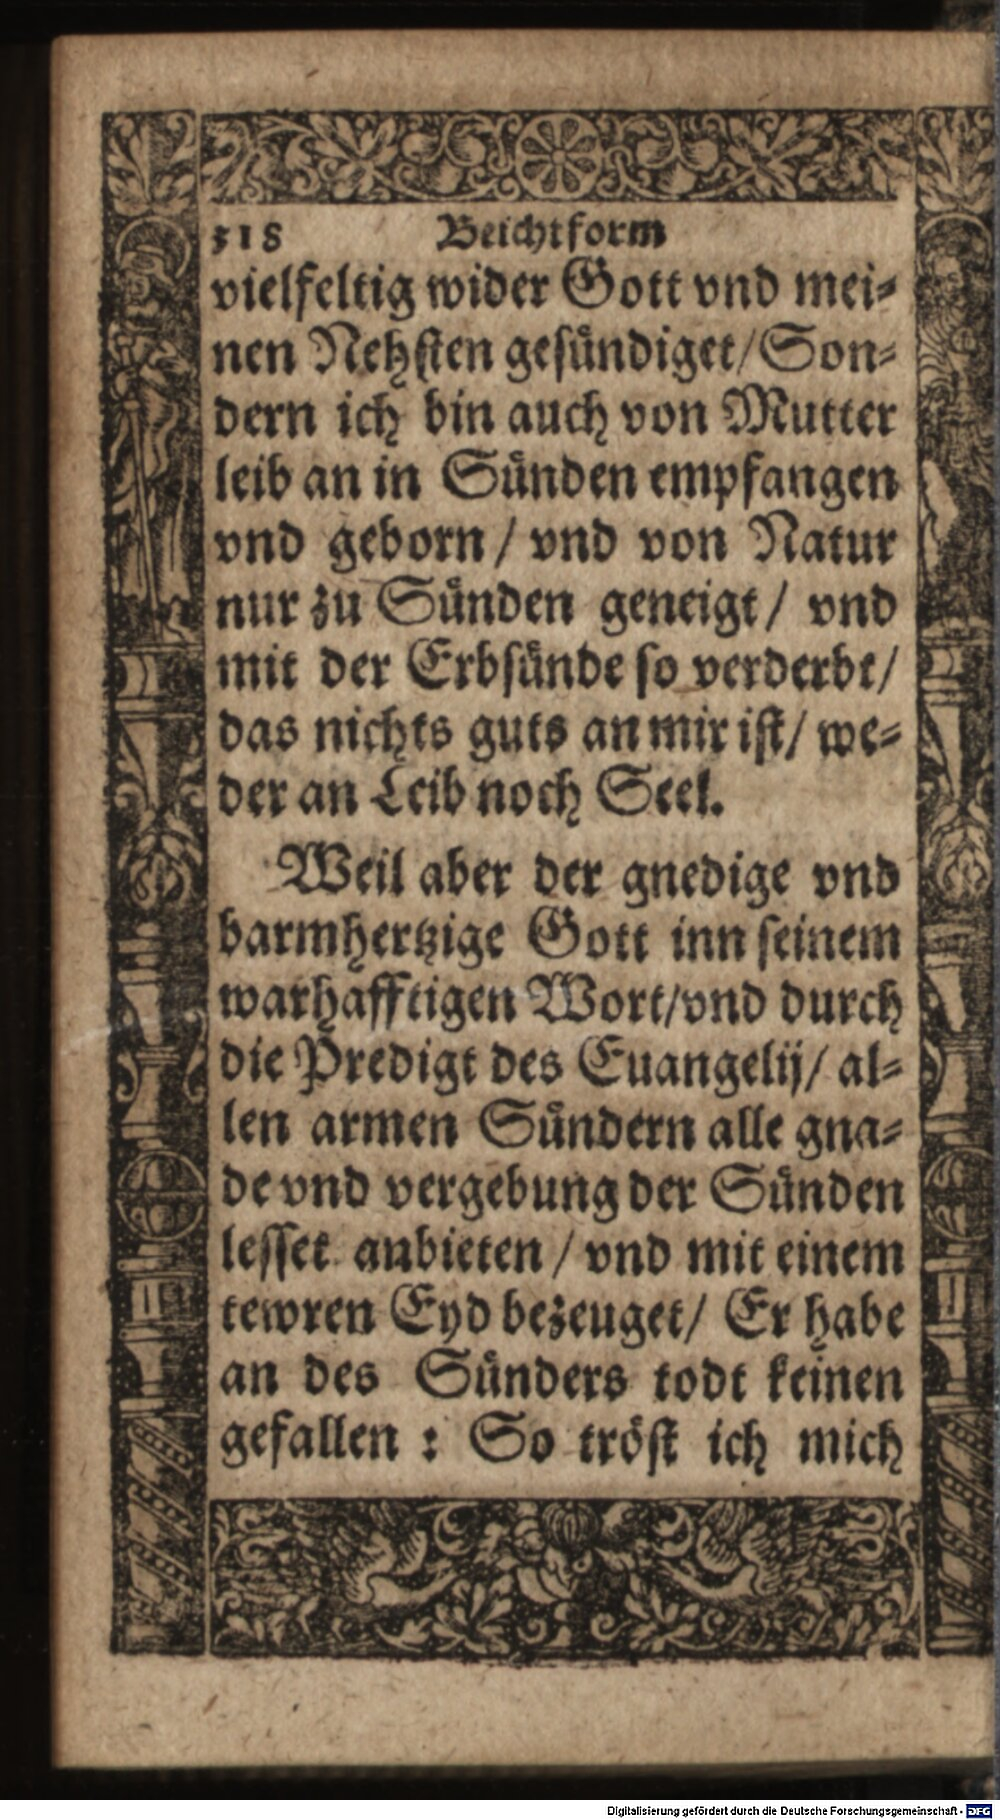 318 Beichtform
vielfeltig wider Gott vnd mei⸗
nen Nehſten geſündiget/ Son⸗
dern ich bin auch von Mutter
leib an in Sünden empfangen
vnd geborn / vnd von Natur
nur zu Sünden geneigt / vnd
mit der Erbſünde ſo verderbt/
das nichts guts an mir iſt/ we⸗
der an Leib noch Seel.
Weil aber der gnedige vnd
barmhertzige Gott inn ſeinem
warhafftigen Wort/ vnd durch
die Predigt des Euangelij/ al⸗
len armen Sündern alle gna⸗
de vnd vergebung der Sünden
leſſet anbieten / vnd mit einem
tewren Eyd bezeuget/ Er habe
an des Sünders todt keinen
gefallen : So tröſt ich mich
Digitalisierung gefördert durch die Deutsche Forschungsgemeinschaft - DFG